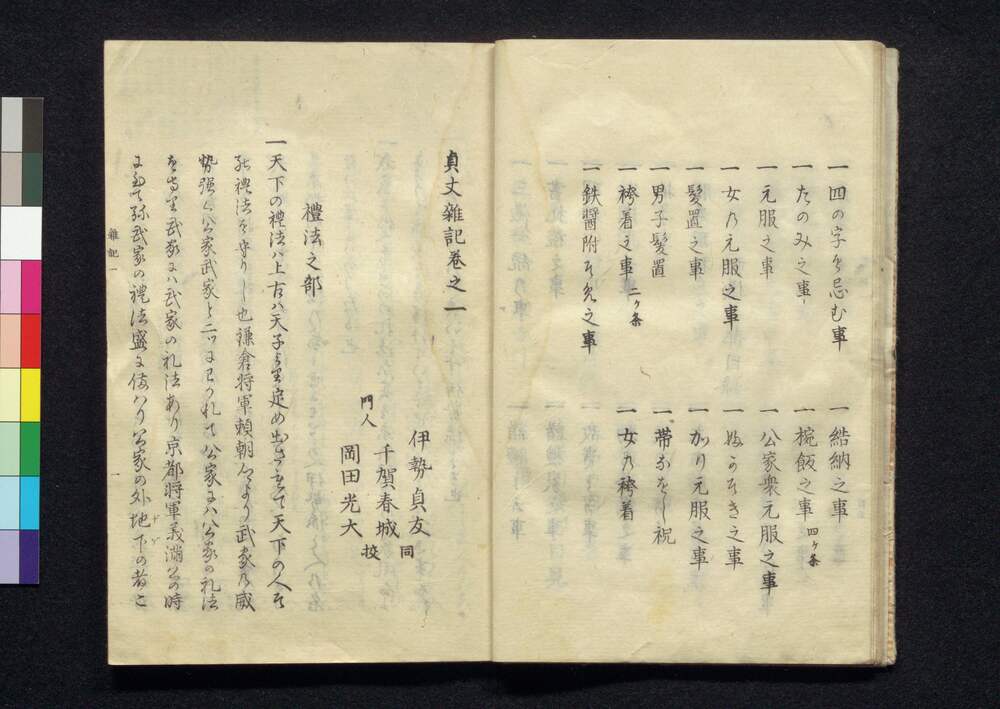 一四の字を忌む事
一たのみ之事
一元服之事
一女乃元服之事
一髪置之事
一男子髪置
一袴着之事 二ヶ条
一鉄醤附そめ之事
一結納之事
一椀飯之事 四ヶ条
一公家衆元服之事
一かり元服之事
一帯なをし祝
一女乃袴着
貞丈雑記巻之一
伊勢貞友
門人 千賀春城 同
岡田光大 校
禮法之部
一天下の禮法ハ上古ハ天子より定め出されて天下の人そ
禮法を守りし也鎌倉将軍頼朝公より武家乃威
勢強く公家武家と二ツにわかれて公家にハ公家の礼法
を守り武家にハ武家の礼法あり京都将軍義満公の時
に至て弥武家の禮法盛に備ハり公家の外地下の者も
雑記一
一